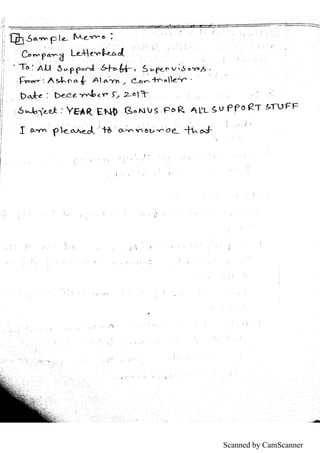 Sample Memo :
Company Letterhead
To : All Support Staff, Supervisors.
From : Ashraf Alam, Controller.
Date : December 5, 2017
Subject : YEAR END BONUS FOR ALL SUPPORT STUFF
I am pleased to announce that
Scanned by CamScanner